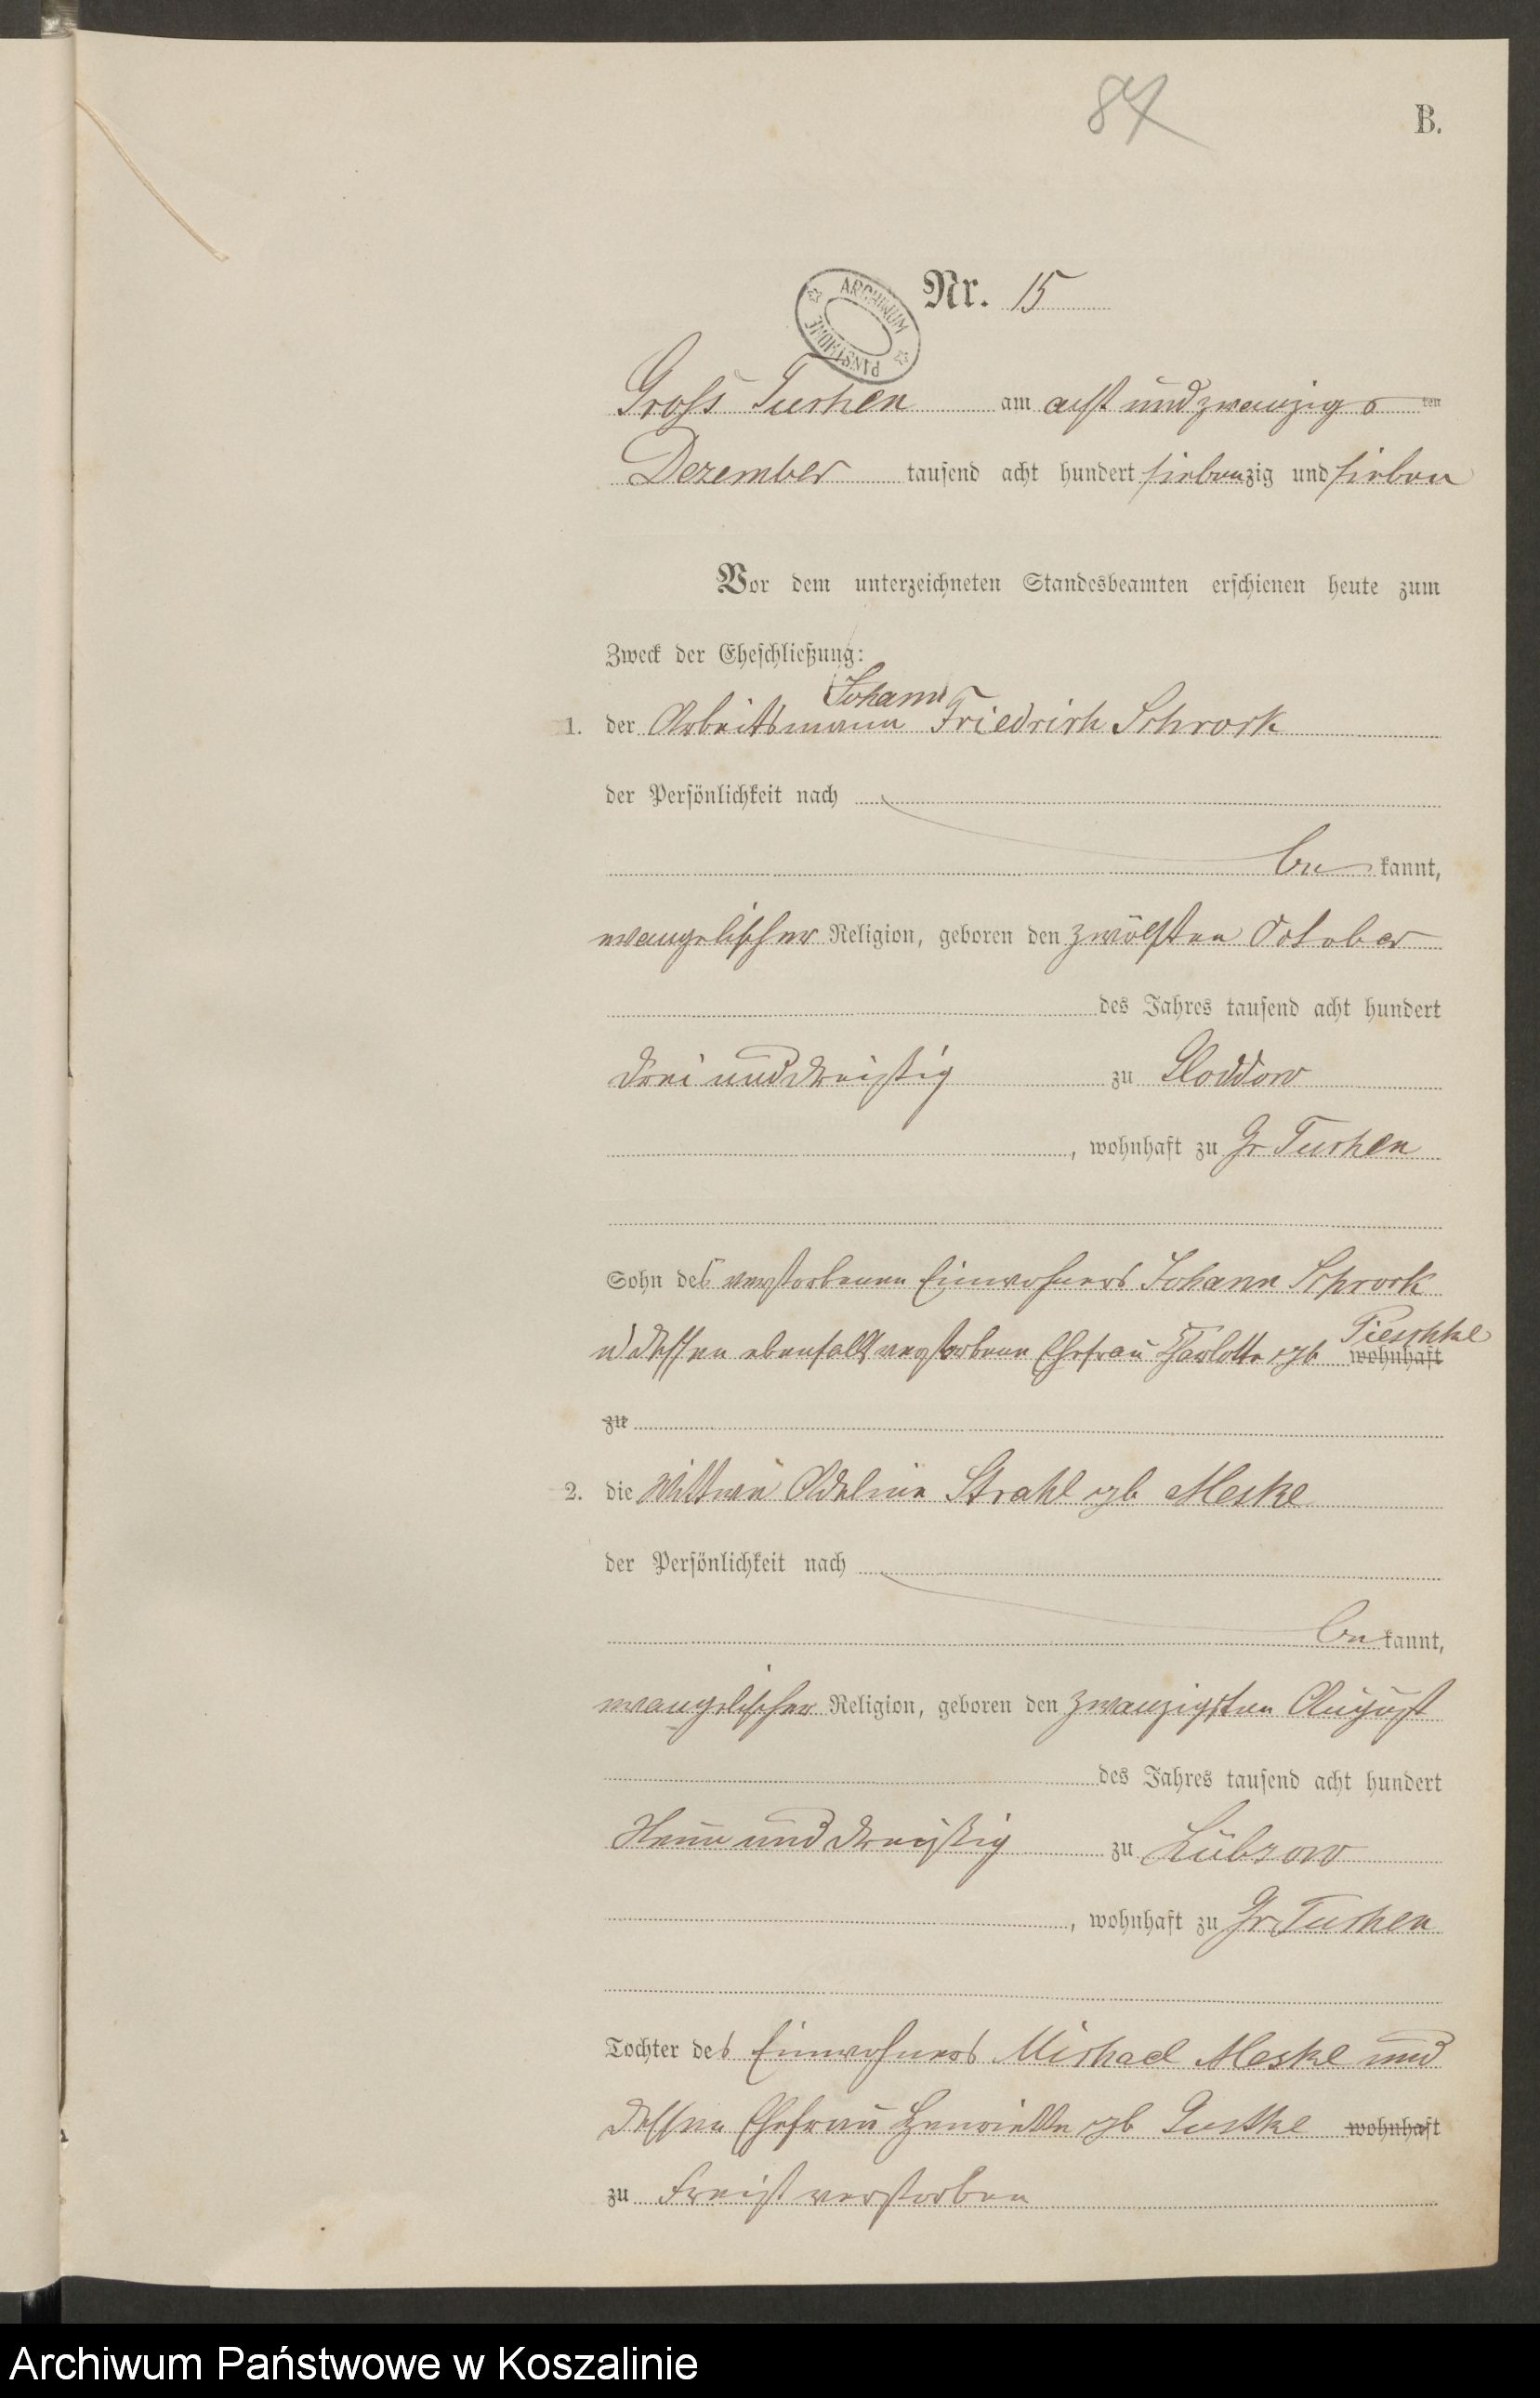 87
B.
ARCHIWUM PAŃSTWOWE
Nr. 15
Gross Tuchen am acht und zwanzigs ten
Dezember tausend acht hundert siebenzig und sieben
Vor dem unterzeichneten Standesbeamten erschienen heute zum
Zweck der Eheschließung:
Johann
1. der Arbeitsmann Friedrich Schrock
der Persönlichkeit nach
be kannt,
evangelischer Religion, geboren den zwölften October
des Jahres tausend acht hundert
drei und dreißig zu
, wohnhaft zu Gr Tuchen
Sohn des verstorbenen Einwohners Johann Schrock
u dessen ebenfalls verstorbene Ehefrau Charlotte geb Pieschke wohnhaft
zu
2. die Wittwe Adeline Strahl geb Meske
der Persönlichkeit nach
be kannt,
evangelischer Religion, geboren den zwanzigsten August
des Jahres tausend acht hundert
Neun und dreißig zu Lübzow
, wohnhaft zu Gr. Tuchen
Tochter des Einwohners Michael Meske und
dessen Ehefrau Henriette geb wohnhaft
zu Freist verstorben
Archiwum Państwowe w Koszalinie